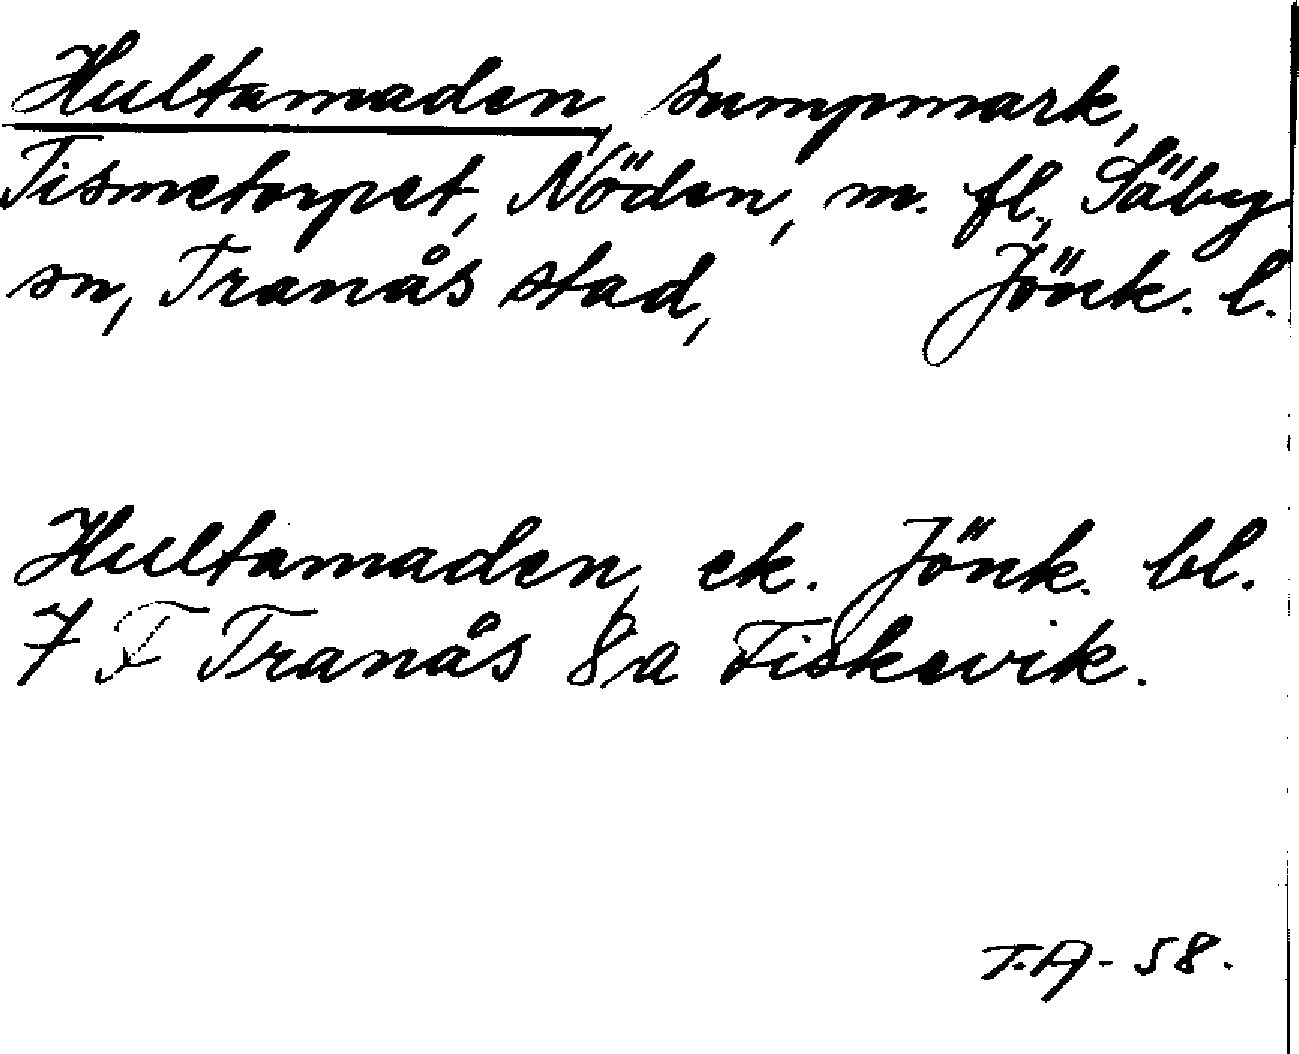 Hultamaden, sumpmark,
Tismetorpet, Nöden, m. fl., Säby
sn, Tranås stad, Jönk. l.
Hultamaden, ek. Jönk. bl.
7 F Tranås 8a Fiskevik.
T.A-58.